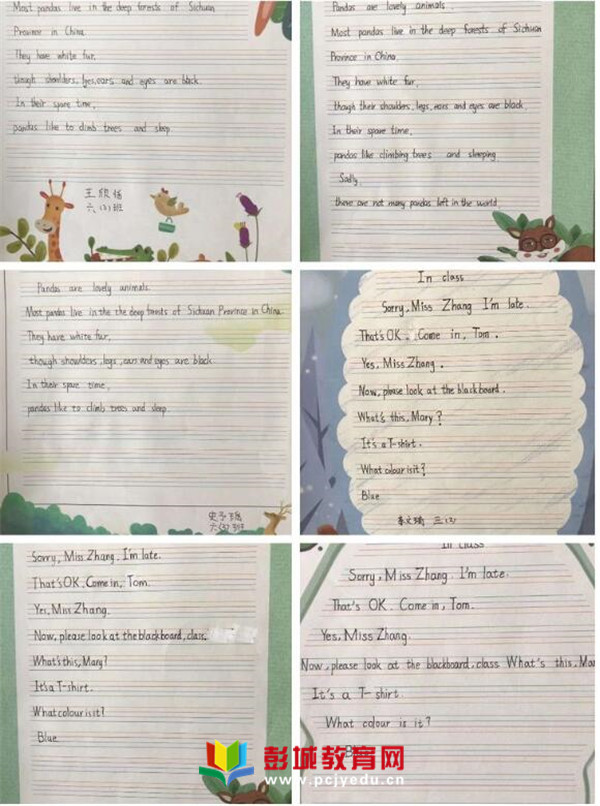 Most pandas live in the deep forests of Sichuan
Province in China.
They have white fur,
though shoulders, legs, ears and eyes are black.
In their spare time,
pandas like to climb trees and sleep
六
班
Pandas are lovely animals.
Most pandas live in the deep forests of Sichuan
Province in China.
They have white fur,
though their shoulders, legs, ears and eyes are black.
In their spare time,
pandas like climbing trees and sleeping.
Sadly,
there are not many pandas left in the world.
Pandas are lovely animals.
Most pandas live in the the deep forests of Sichuan Province in China.
They have white fur,
though shoulders, legs, ears and eyes are black.
In their spare time,
pandas like to climb trees and sleep.
史子
六
班
In class
Sorry, Miss Zhang I'm late.
That's OK. Come in, Tom.
Yes, Miss Zhang.
Now, please look at the blackboard.
What's this, Mary?
It's a T-shirt.
What colour is it?
Blue
三
Sorry, Miss Zhang. I'm late.
That's OK. Come in, Tom.
Yes, Miss Zhang.
Now, please look at the blackboard, class.
What's this, Mary?
It's a T-shirt.
What colour is it?
Blue
In class
Sorry, Miss Zhang. I'm late.
That's OK. Come in, Tom.
Yes, Miss Zhang.
Now, please look at the blackboard, class What's this, Ma
It's a T-shirt.
What colour is it?
彭城教育网
www.pcjyedu.cn